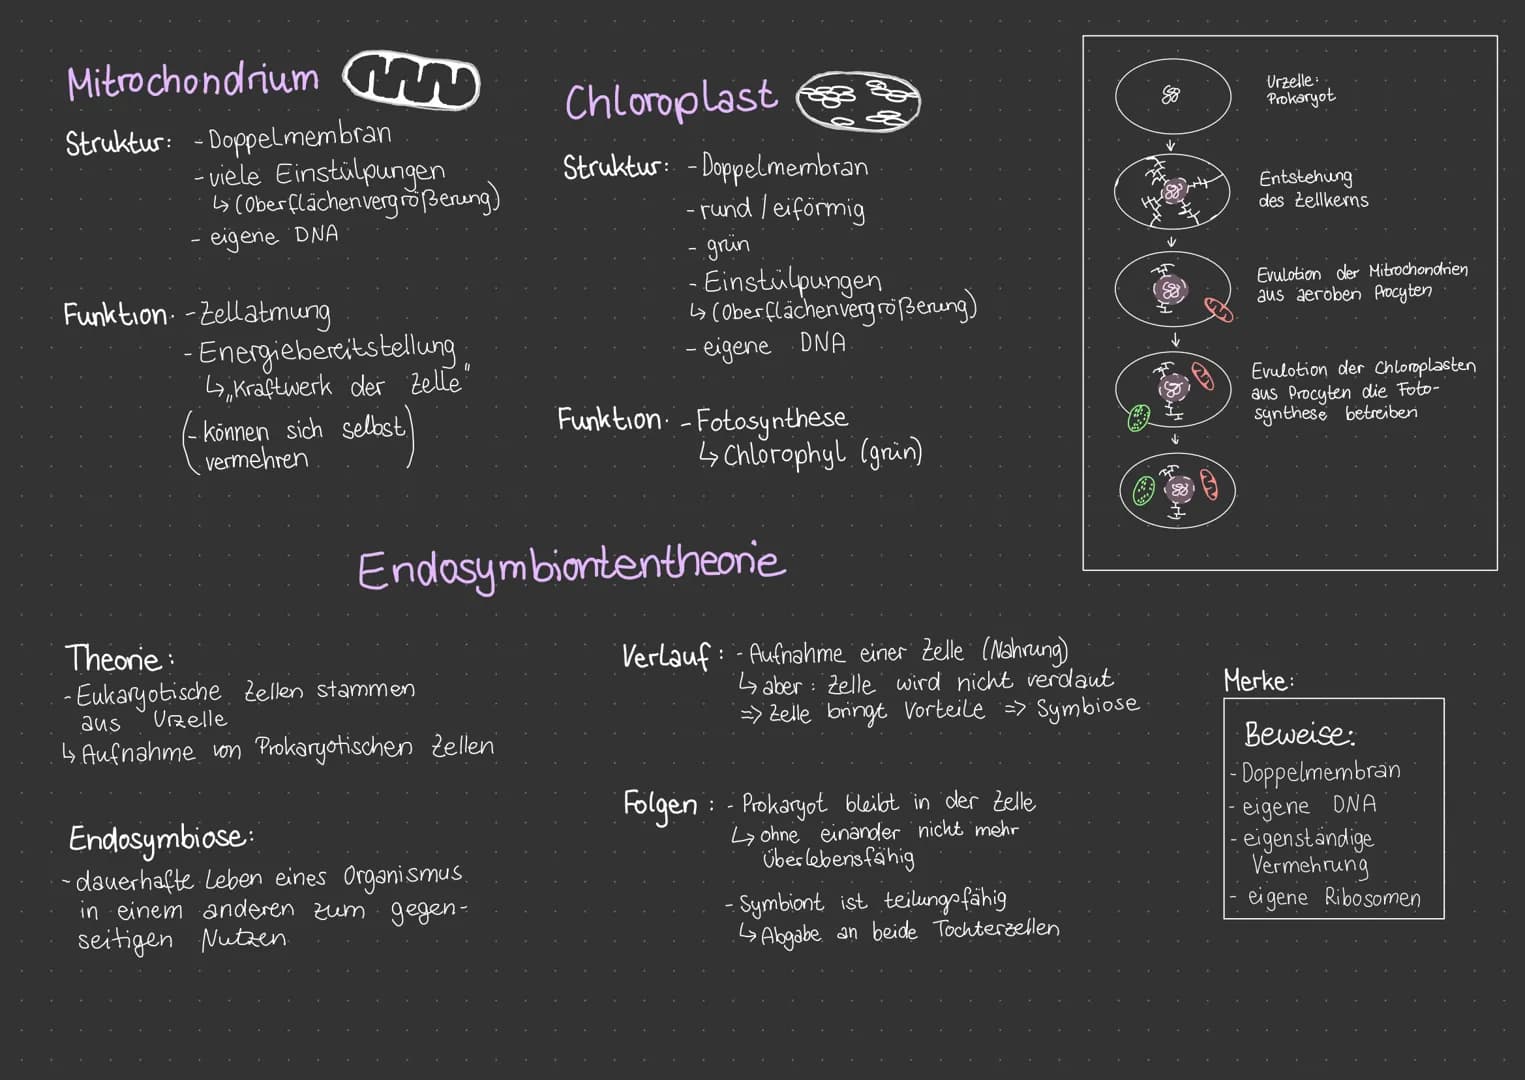 Mitrochondrium
Struktur: - Doppelmembran
- viele Einstülpungen
↳ (Oberflächenvergrößerung)
- eigene DNA
Funktion: - Zellatmung
- Energiebereitstellung
↳ „Kraftwerk der Zelle"
(- können sich selbst
vermehren)
Chloroplast
Struktur: - Doppelmembran
- rund / eiförmig
- grün
- Einstülpungen
↳ (Oberflächenvergrößerung)
- eigene DNA
Funktion: - Fotosynthese
↳ Chlorophyl (grün)
Urzelle:
Prokaryot
Entstehung
des Zellkerns
Evulotion der Mitrochondrien
aus aeroben Procyten
Evulotion der Chloroplasten
aus Procyten die Foto-
synthese betreiben
Endosymbiontentheorie
Theorie:
- Eukaryotische Zellen stammen
aus Urzelle
↳ Aufnahme von Prokaryotischen Zellen
Endosymbiose:
- dauerhafte Leben eines Organismus
in einem anderen zum gegen-
seitigen Nutzen
Verlauf: - Aufnahme einer Zelle (Nahrung)
↳ aber: Zelle wird nicht verdaut
=> Zelle bringt Vorteile => Symbiose
Folgen: - Prokaryot bleibt in der Zelle
↳ ohne einander nicht mehr
Überlebensfähig
- Symbiont ist teilungsfähig
↳ Abgabe an beide Tochterzellen
Merke:
Beweise:
- Doppelmembran
- eigene DNA
- eigenständige
Vermehrung
- eigene Ribosomen